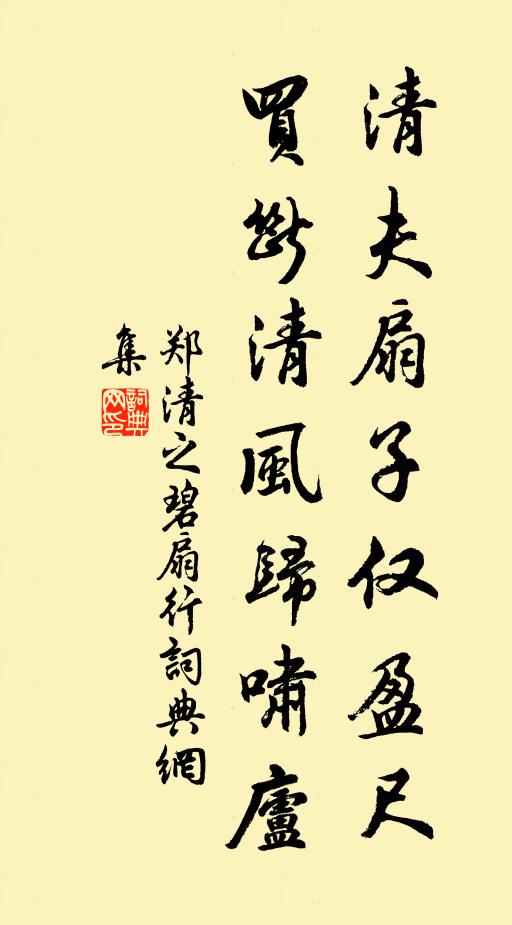 清夫扇子仅盈尺
買断清風歸嘯廬
郑清之碧扇行詞典網
集
詞典网印